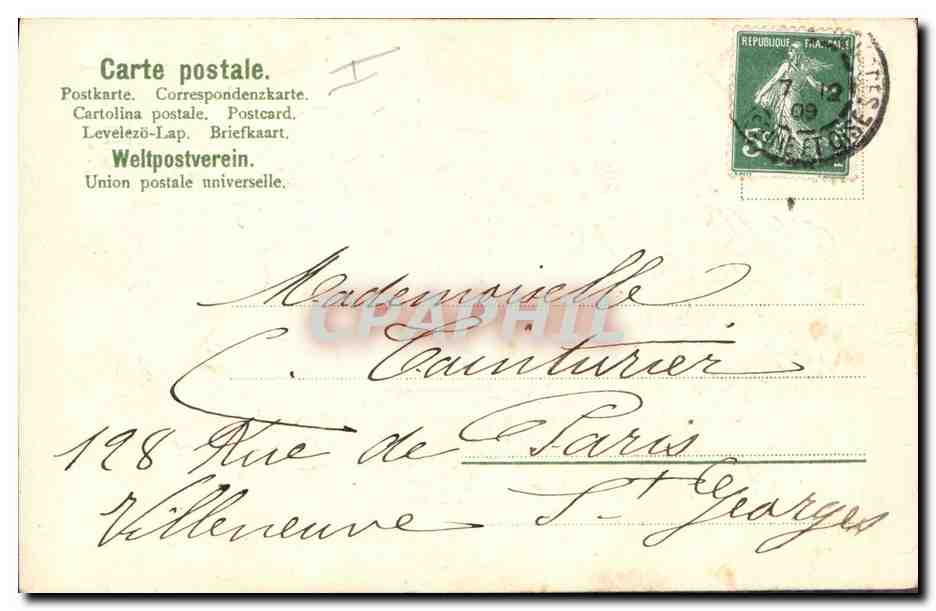 Carte postale.
Postkarte. Correspondenzkarte.
Cartolina postale. Postcard.
Levelező-Lap. Briefkaart.
Weltpostverein.
Union postale universelle.
REPUBLIQUE FRANÇAISE
7 12
09
SEINE ET OISE
5
CPAPHIL
Mademoiselle
C. Tainturier
128 Rue de Paris
Villeneuve St Georges